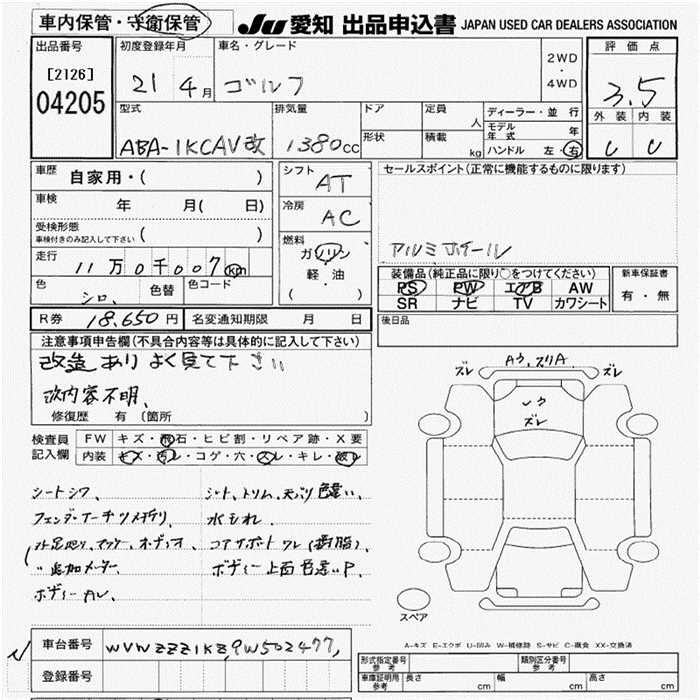 車内保管・守衛保管
JU 愛知 出品申込書 JAPAN USED CAR DEALERS ASSOCIATION
出品番号
[2126]
04205
初度登録年月
21 4月
車名・グレード
ゴルフ
2WD
・
4WD
評価点
3.5
外装 内装
C C
型式
ABA-1KCAV改
排気量
1380cc
ドア
形状
定員
人
積載
kg
ディーラー・並行
モデル年式 年
ハンドル 左・右
車歴 自家用・( )
車検 年 月( 日)
受検形態
車検付きのみ記入して下さい ( )
走行 11万0千007km
色 シロ、 色替 色コード
R券 18,650円 名変通知期限 月 日
シフト AT
冷房 AC
燃料
ガソリン
軽・油
( )
セールスポイント(正常に機能するものに限ります)
アルミホイール
装備品(純正品に限り○をつけてください)
PS PW エアB AW
SR ナビ TV カワシート
新車保証書
有・無
後日品
注意事項申告欄(不具合内容等は具体的に記入して下さい)
改造ありよく見て下さい
改内容不明、
修復歴 有 〔箇所 〕
検査員記入欄
FW キズ・飛石・ヒビ割・リペア跡・X要
内装 キズ・汚レ・コゲ・穴・スレ・キレ・破レ
シートシワ、
シート、トリム、天バリ色違い、
水もれ、
コアサポートワレ(樹脂)
〃追加メーター、
ボディー上面色違いP
ズレ ズレ
ズレ
スペア
A-キズ E-エクボ U-凹み W-補修跡 S-サビ C-腐食 XX-交換済
車台番号 WVWZZZ1KZ9W502477,
登録番号
形式指定番号 参考
類別区分番号 参考
車庫証明用 参考 長さ cm 幅 cm 高さ cm